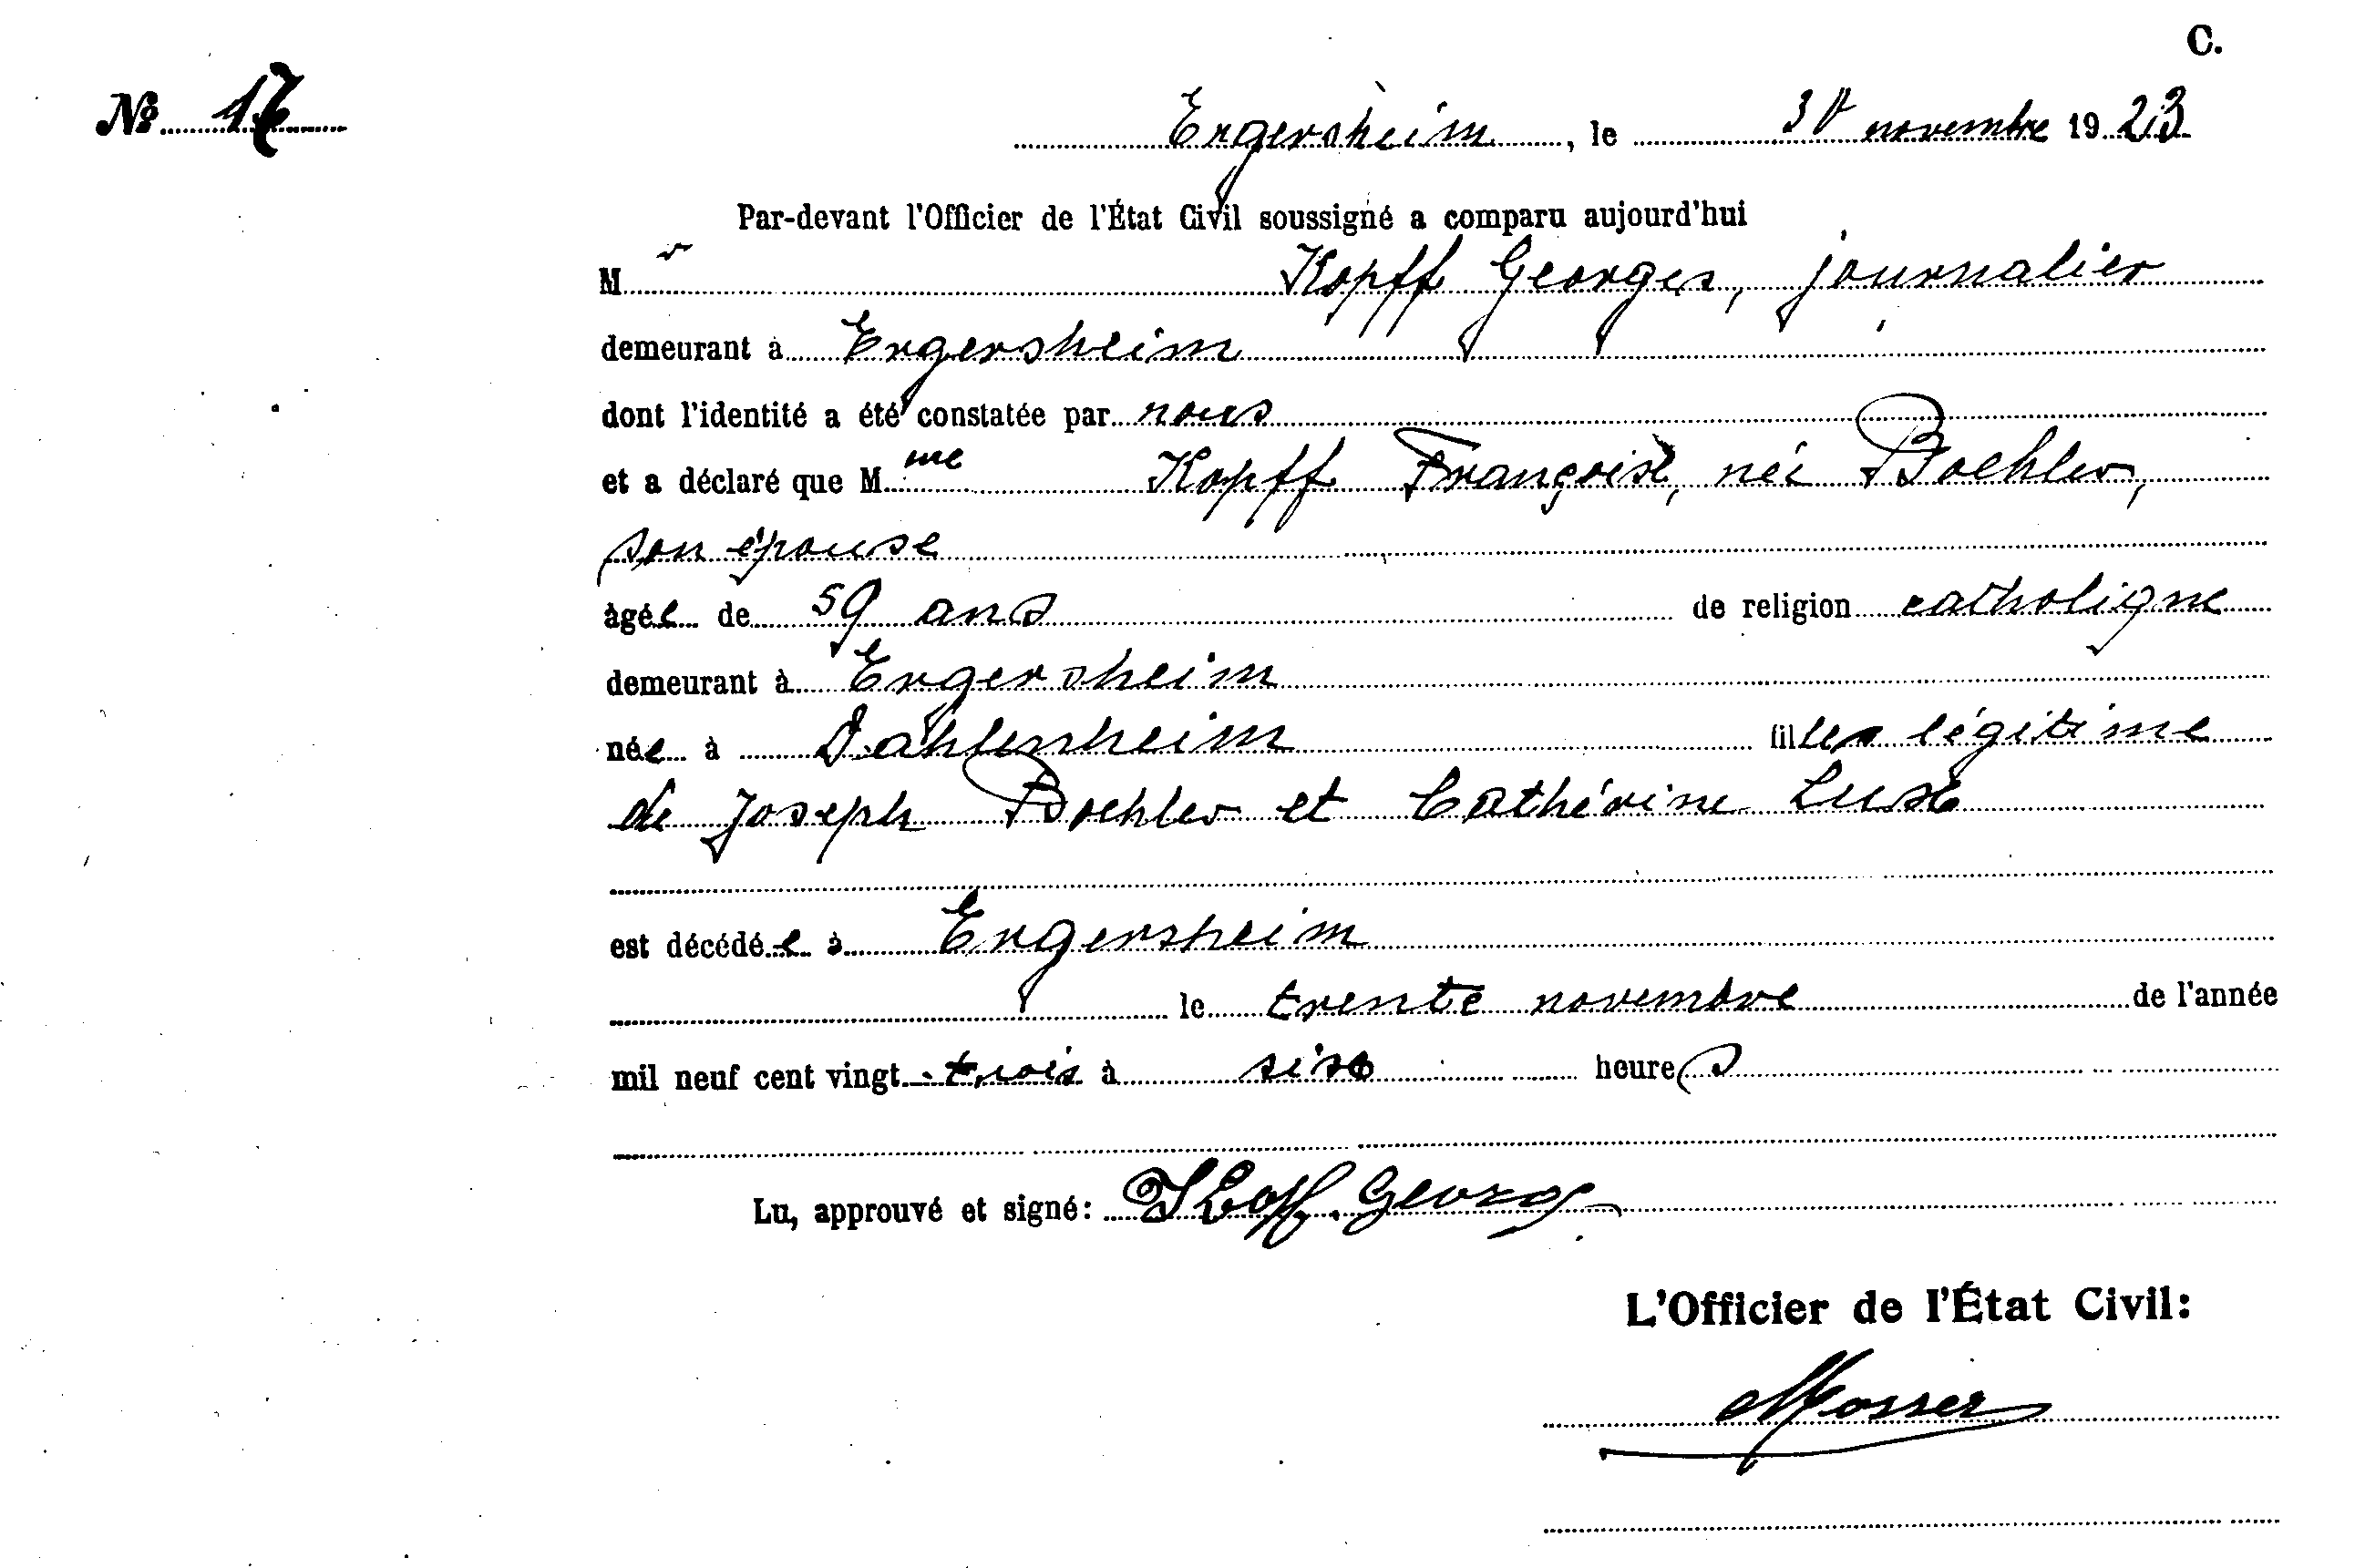 C.
Nº 17
Ergersheim, le 30 novembre 1923
Par-devant l'Officier de l'État Civil soussigné a comparu aujourd'hui
Mr Kopff Georges, journalier
demeurant à Ergersheim
dont l'identité a été constatée par nous
et a déclaré que Mme Kopff Françoise, née Boehler,
son épouse
âgée de 59 ans de religion catholique
demeurant à Ergersheim
née à Dahlenheim fille légitime
de Joseph Boehler et Cathérine Lux
est décédée à Ergersheim
le trente novembre de l'année
mil neuf cent vingt-trois à six heures
Lu, approuvé et signé: Kopff Georg
L'Officier de l'État Civil:
Mosser